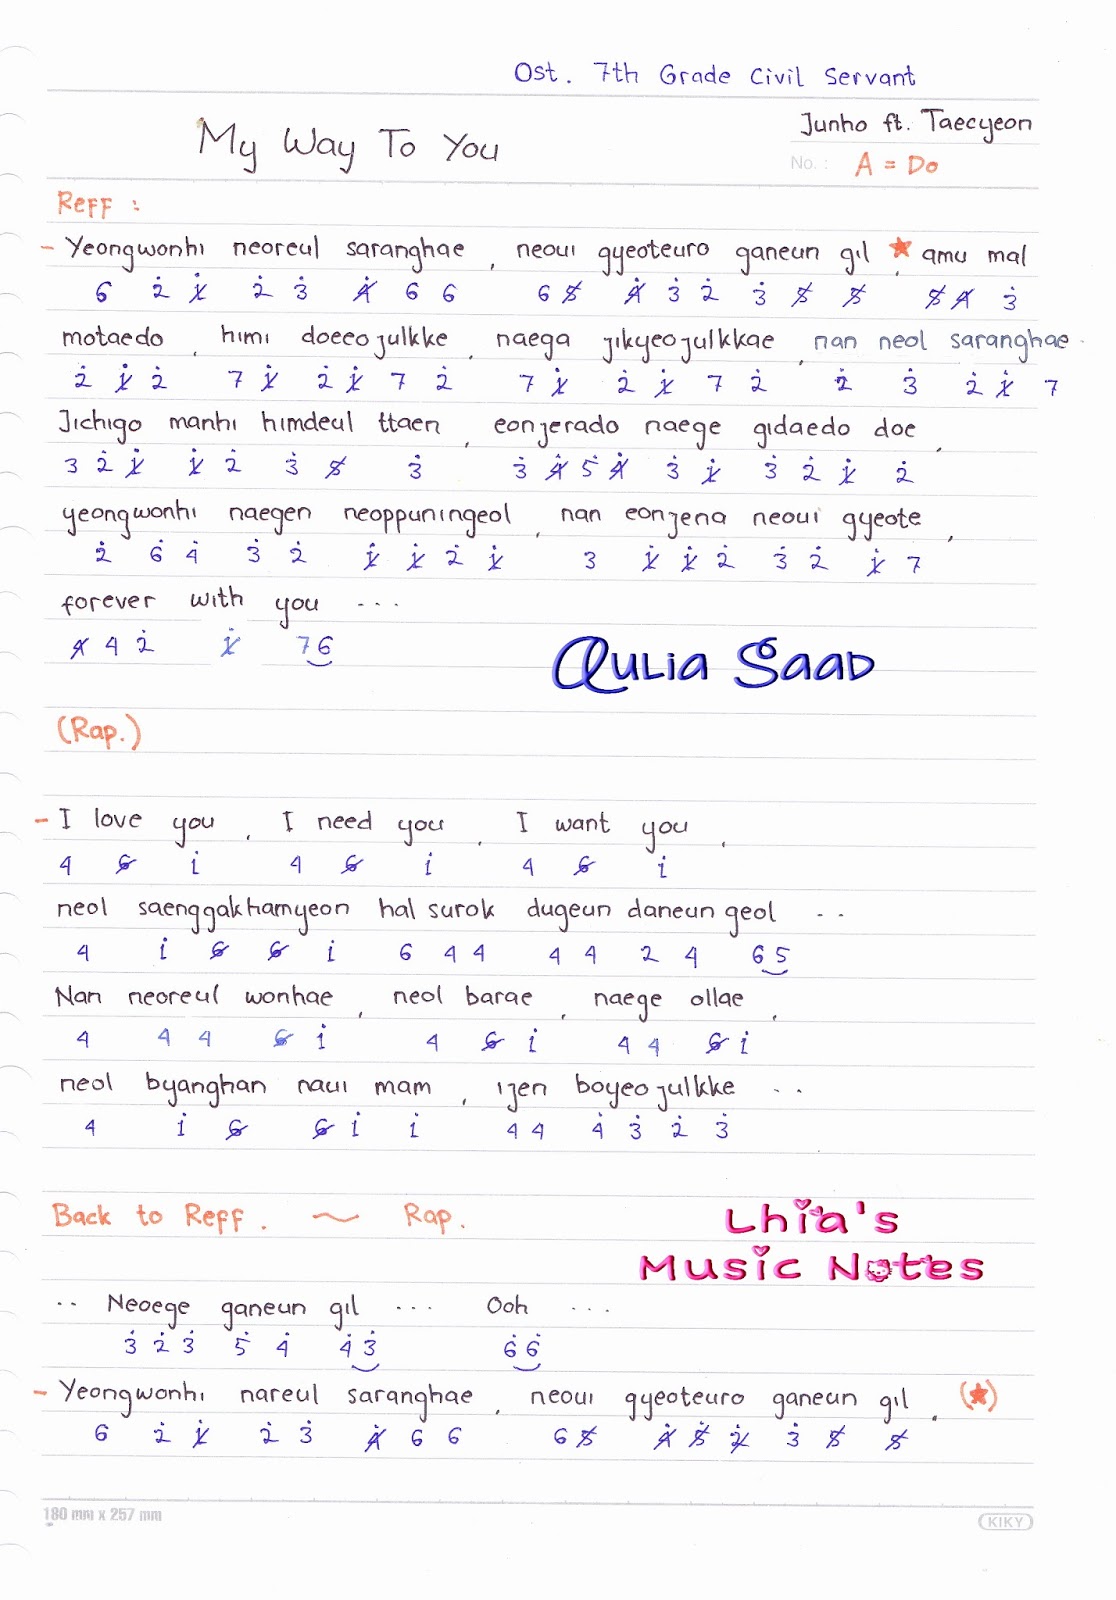 Ost. 7th Grade Civil Servant
My Way To You
Junho ft. Taecyeon
No. : A = Do
Reff :
- Yeongwonhi neoreul saranghae , neoui gyeoteuro ganeun gil ★ , amu mal
6 2̇ 1̸̇ 2̇ 3̇ 4̸̇ 6 6 6 5̸ 4̸̇ 3̇ 2̇ 3̇ 5̸̇ 5̸̇ 5̸ 4̸ 3̇
motaedo , himi doeeojulkke , naega jikyeojulkkae , nan neol saranghae .
2̇ 1̸̇ 2̇ 7 1̸̇ 2̇ 1̸̇ 7 2̇ 7 1̸̇ 2̇ 1̸̇ 7 2̇ 2̇ 3̇ 2̇ 1̸̇ 7
Jichigo manhi himdeul ttaen , eonjerado naege gidaedo doe ,
3 2̇ 1̸̇ 1̸̇ 2̇ 3̇ 5̸ 3̇ 3̇ 4̸̇ 5̇ 4̸̇ 3̇ 1̸̇ 3̇ 2̇ 1̸̇ 2̇
yeongwonhi naegen neoppuningeol , nan eonjena neoui gyeote ,
2̇ 6̇ 4̇ 3̇ 2̇ 1̸̇ 1̸̇ 2̇ 1̸̇ 3 1̸̇ 1̸̇ 2̇ 3̇ 2̇ 1̸̇ 7
forever with you ...
4̸ 4 2̇ 1̸̇ 76
Qulia Saad
(Rap.)
- I love you , I need you , I want you ,
4 6̸ 1̇ 4 6̸ 1̇ 4 6̸ 1̇
neol saenggakhamyeon hal surok dugeun daneun geol ..
4 1̇ 6̸ 6̸ 1̇ 6 4 4 4 4 2 4 65
Nan neoreul wonhae , neol barae , naege ollae ,
4 4 4 6̸ 1̇ 4 6̸ 1̇ 4 4 6̸ 1̇
neol byanghan naui mam , ijen boyeojulkke ..
4 1̇ 6̸ 6̸ 1̇ 1̇ 4 4 4̇ 3̇ 2̇ 3̇
Back to Reff. ~ Rap.
Lhia's
Music Notes
.. Neoege ganeun gil ... Ooh ...
3̇ 2̇ 3̇ 5̇ 4̇ 4̇3̇ 6̇6̇
- Yeongwonhi nareul saranghae , neoui gyeoteuro ganeun gil , (★)
6 2̇ 1̸̇ 2̇ 3̇ 4̸̇ 6 6 6 5̸ 4̸̇ 5̸̇ 2̸̇ 3̇ 5̸̇ 5̸̇
180 mm x 257 mm
KIKY